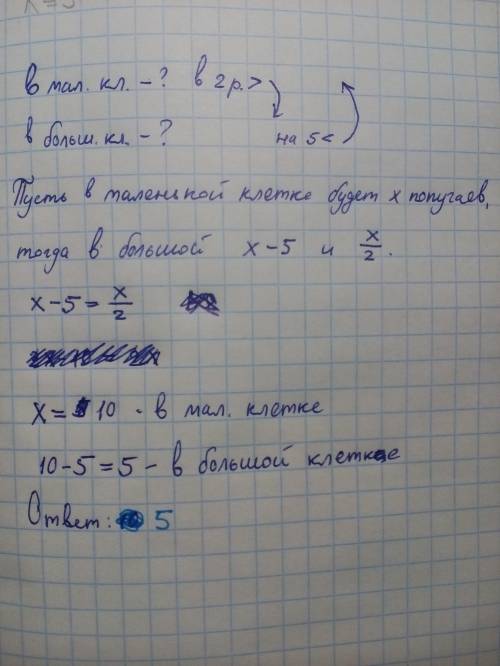 в мал. кл. - ? в 2 р. >
в больш. кл. - ? на 5 <
Пусть в маленькой клетке будет x попугаев,
тогда в большой x - 5 и x/2.
x - 5 = x/2
x = 10 - в мал. клетке
10 - 5 = 5 - в большой клетке
Ответ: 5